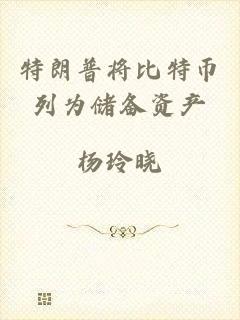 特朗普将比特币
列为储备资产
杨玲晓